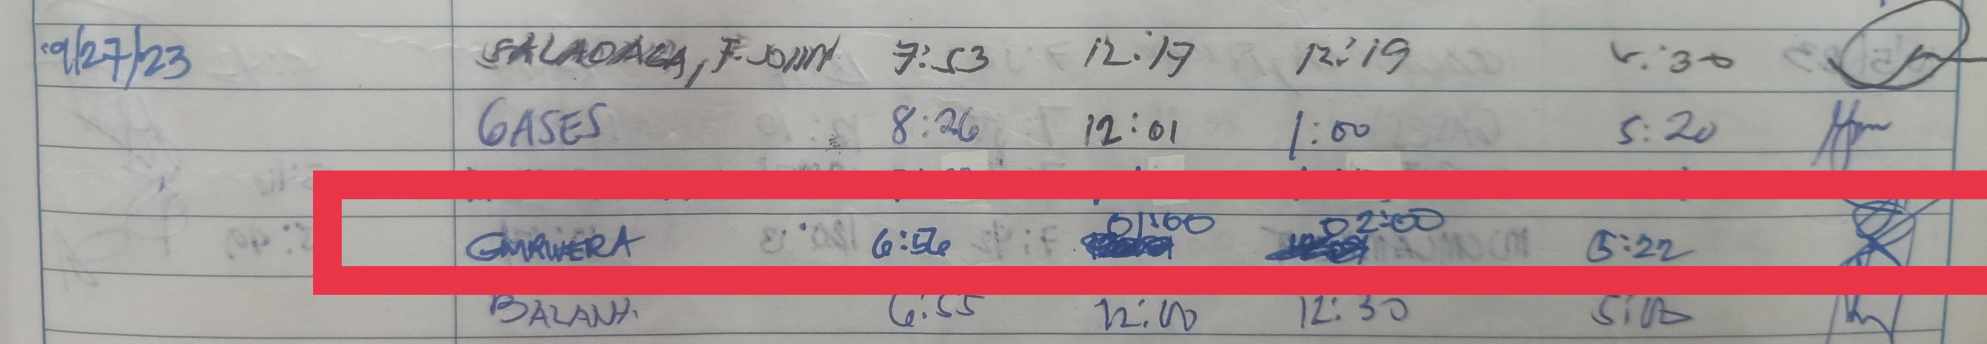 9/27/23 SALADAGA, F. JOHN 7:53 12:17 12:19 5:30
GASES 8:26 12:01 1:00 5:20
6:56 01:00 02:00 5:22
6:55 12:00 12:30 5:10